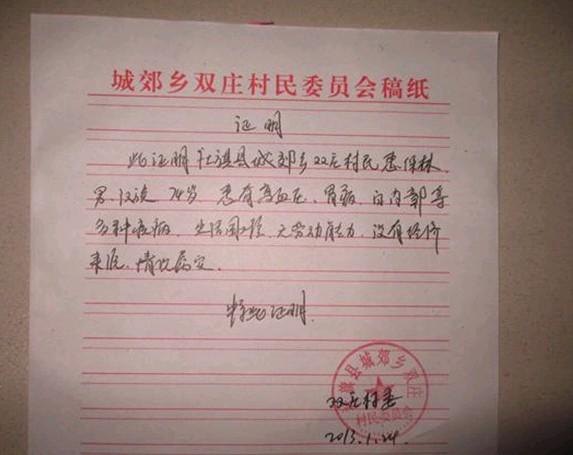 城郊乡双庄村民委员会稿纸
证明
此证明社旗县城郊乡双庄村民惠保林
男、汉族 74岁 患有高血压、胃病、白内郭等
多种疾病、生活困难、无劳动能力、没有经济
来源、情况属实.
特此证明.
旗县城郊乡双庄
村民委员会
双庄村委
2013.1.24